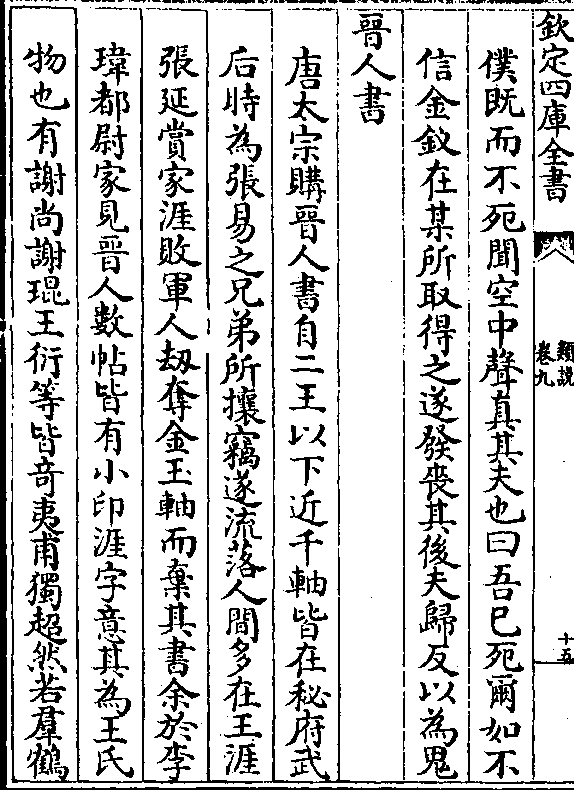 欽定四庫全書
類說
卷九
十五
僕既而不死聞空中聲真其夫也曰吾已死爾如不
信金釵在某所取得之遂發喪其後夫歸反以為鬼
晉人書
唐太宗購晉人書自二王以下近千軸皆在秘府武
后時為張易之兄弟所攘竊遂流落人間多在王涯
張延賞家涯敗軍人刼奪金玉軸而棄其書余於李
瑋都尉家見晉人數帖皆有小印涯字意其為王氏
物也有謝尚謝琨王衍等皆竒夷甫獨超然若羣鶴